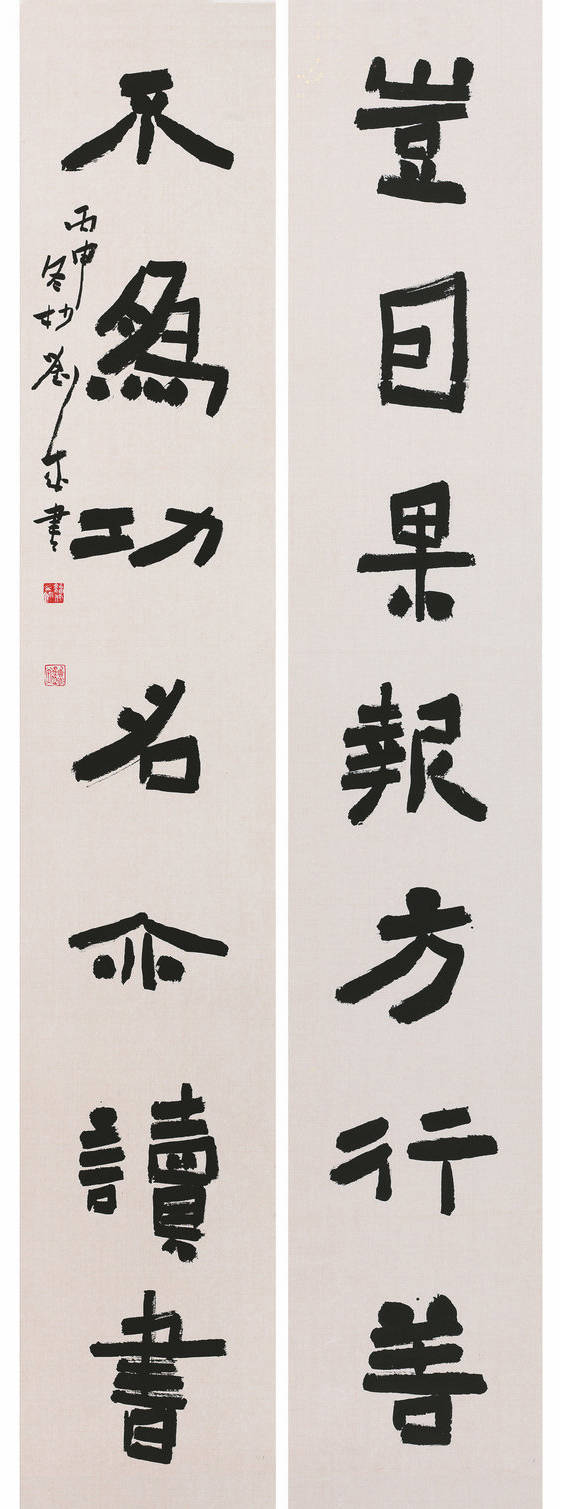 豈囙果報方行善
不為功名亦讀書
丙申冬杪劉書